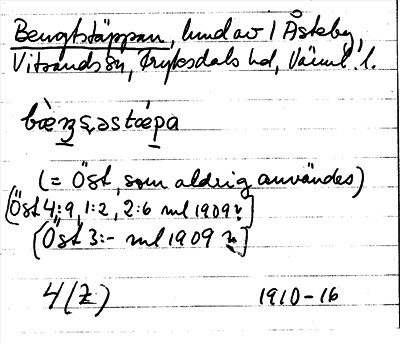 Bengtstäppan, lund av 1 Åstebý,
Vitsands sn, Fryksdals hd, Värml. l.
bæ̀ŋs̨əstæ̀pa
(= Öst, som aldrig användes)
[Öst 4:9, 1:2, 2:6 ml 1909
[Öst 3:- ml 1909
4 (Z) 1910-16